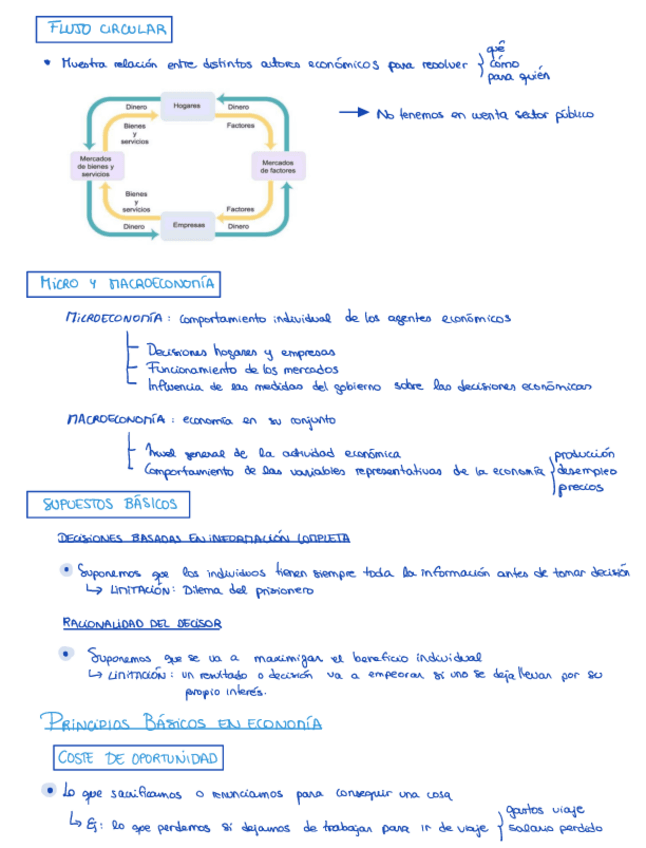 FLUJO CIRCULAR
• Muestra relación entre distintos autores económicos para resolver { qué
cómo
para quién
→ No tenemos en cuenta sector público
Dinero Hogares Dinero
Bienes y servicios Factores
Mercados de bienes y servicios Mercados de factores
Bienes y servicios Factores
Dinero Empresas Dinero
MICRO Y MACROECONOMÍA
MICROECONOMÍA: comportamiento individual de los agentes económicos
Decisiones hogares y empresas
Funcionamiento de los mercados
Influencia de las medidas del gobierno sobre las decisiones económicas
MACROECONOMÍA: economía en su conjunto
Nivel general de la actividad económica
Comportamiento de las variables representativas de la economía { producción
desempleo
precios
SUPUESTOS BÁSICOS
DECISIONES BASADAS EN INFORMACIÓN COMPLETA
• Suponemos que los individuos tienen siempre toda la información antes de tomar decisión
↳ LIMITACIÓN: Dilema del prisionero
RACIONALIDAD DEL DECISOR
• Suponemos que se va a maximizar el beneficio individual
↳ LIMITACIÓN: un resultado o decisión va a empeorar si uno se deja llevar por su
propio interés.
PRINCIPIOS BÁSICOS EN ECONOMÍA
COSTE DE OPORTUNIDAD
• Lo que sacrificamos o renunciamos para conseguir una cosa
↳ Ej: lo que perdemos si dejamos de trabajar para ir de viaje { gastos viaje
salario perdido